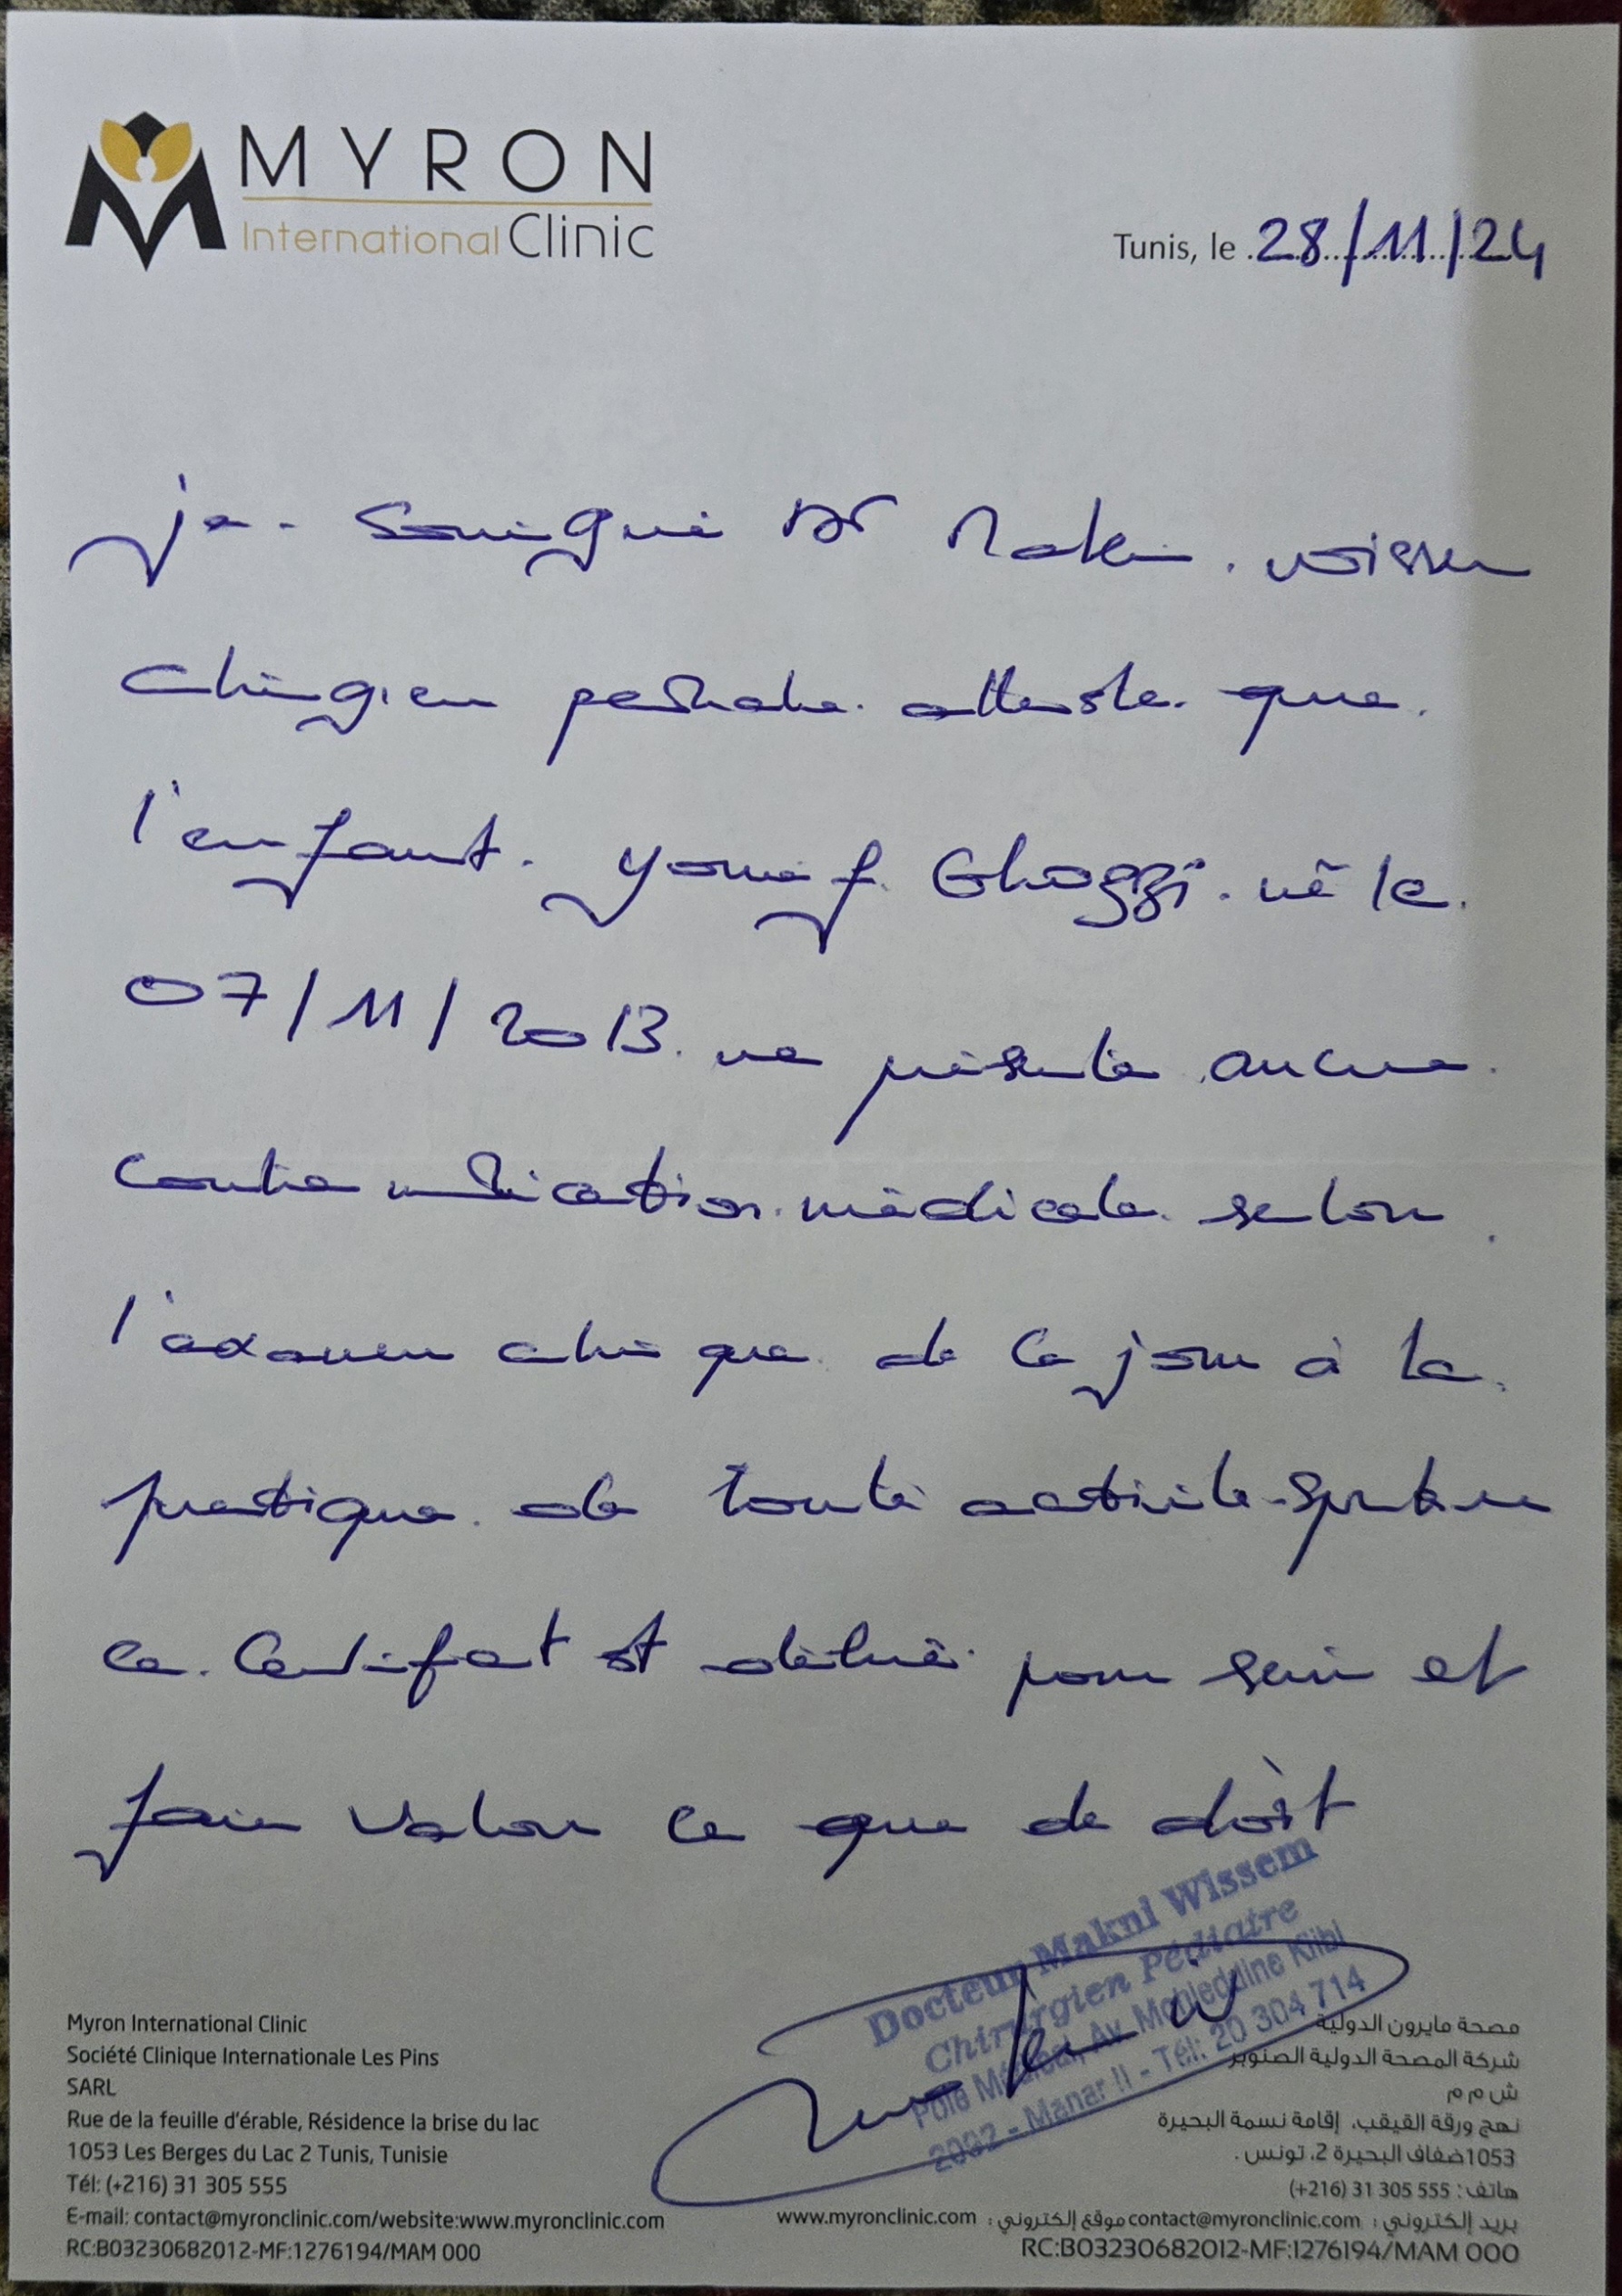 MYRON
International Clinic
Tunis, le 28/11/24
je soussigné Dr Makni wissem
chirurgien pediatre atteste que
l'enfant youssef Ghozzi né le
07/11/2013 ne présente aucune
contre indication médicale selon
l'examen clinique de ce jour à la
pratique de toute activité sportive
ce certificat est délivré pour servir et
faire valoir ce que de doit
Docteur Makni Wissem
Chirurgien Pédiatre
Pôle Médical, Av. Mohieddine Klibi
2092 - Manar II - Tél: 20 304 714
Myron International Clinic
Société Clinique Internationale Les Pins
SARL
Rue de la feuille d'érable, Résidence la brise du lac
1053 Les Berges du Lac 2 Tunis, Tunisie
Tél: (+216) 31 305 555
E-mail: contact@myronclinic.com/website:www.myronclinic.com
RC:B03230682012-MF:1276194/MAM 000
مصحة مايرون الدولية
شركة المصحة الدولية الصنوبر
ش م م
نهج ورقة القيقب، إقامة نسمة البحيرة
1053 ضفاف البحيرة 2، تونس.
هاتف: 555 305 31 (216+)
بريد إلكتروني: contact@myronclinic.com موقع إلكتروني: www.myronclinic.com
RC:B03230682012-MF:1276194/MAM 000